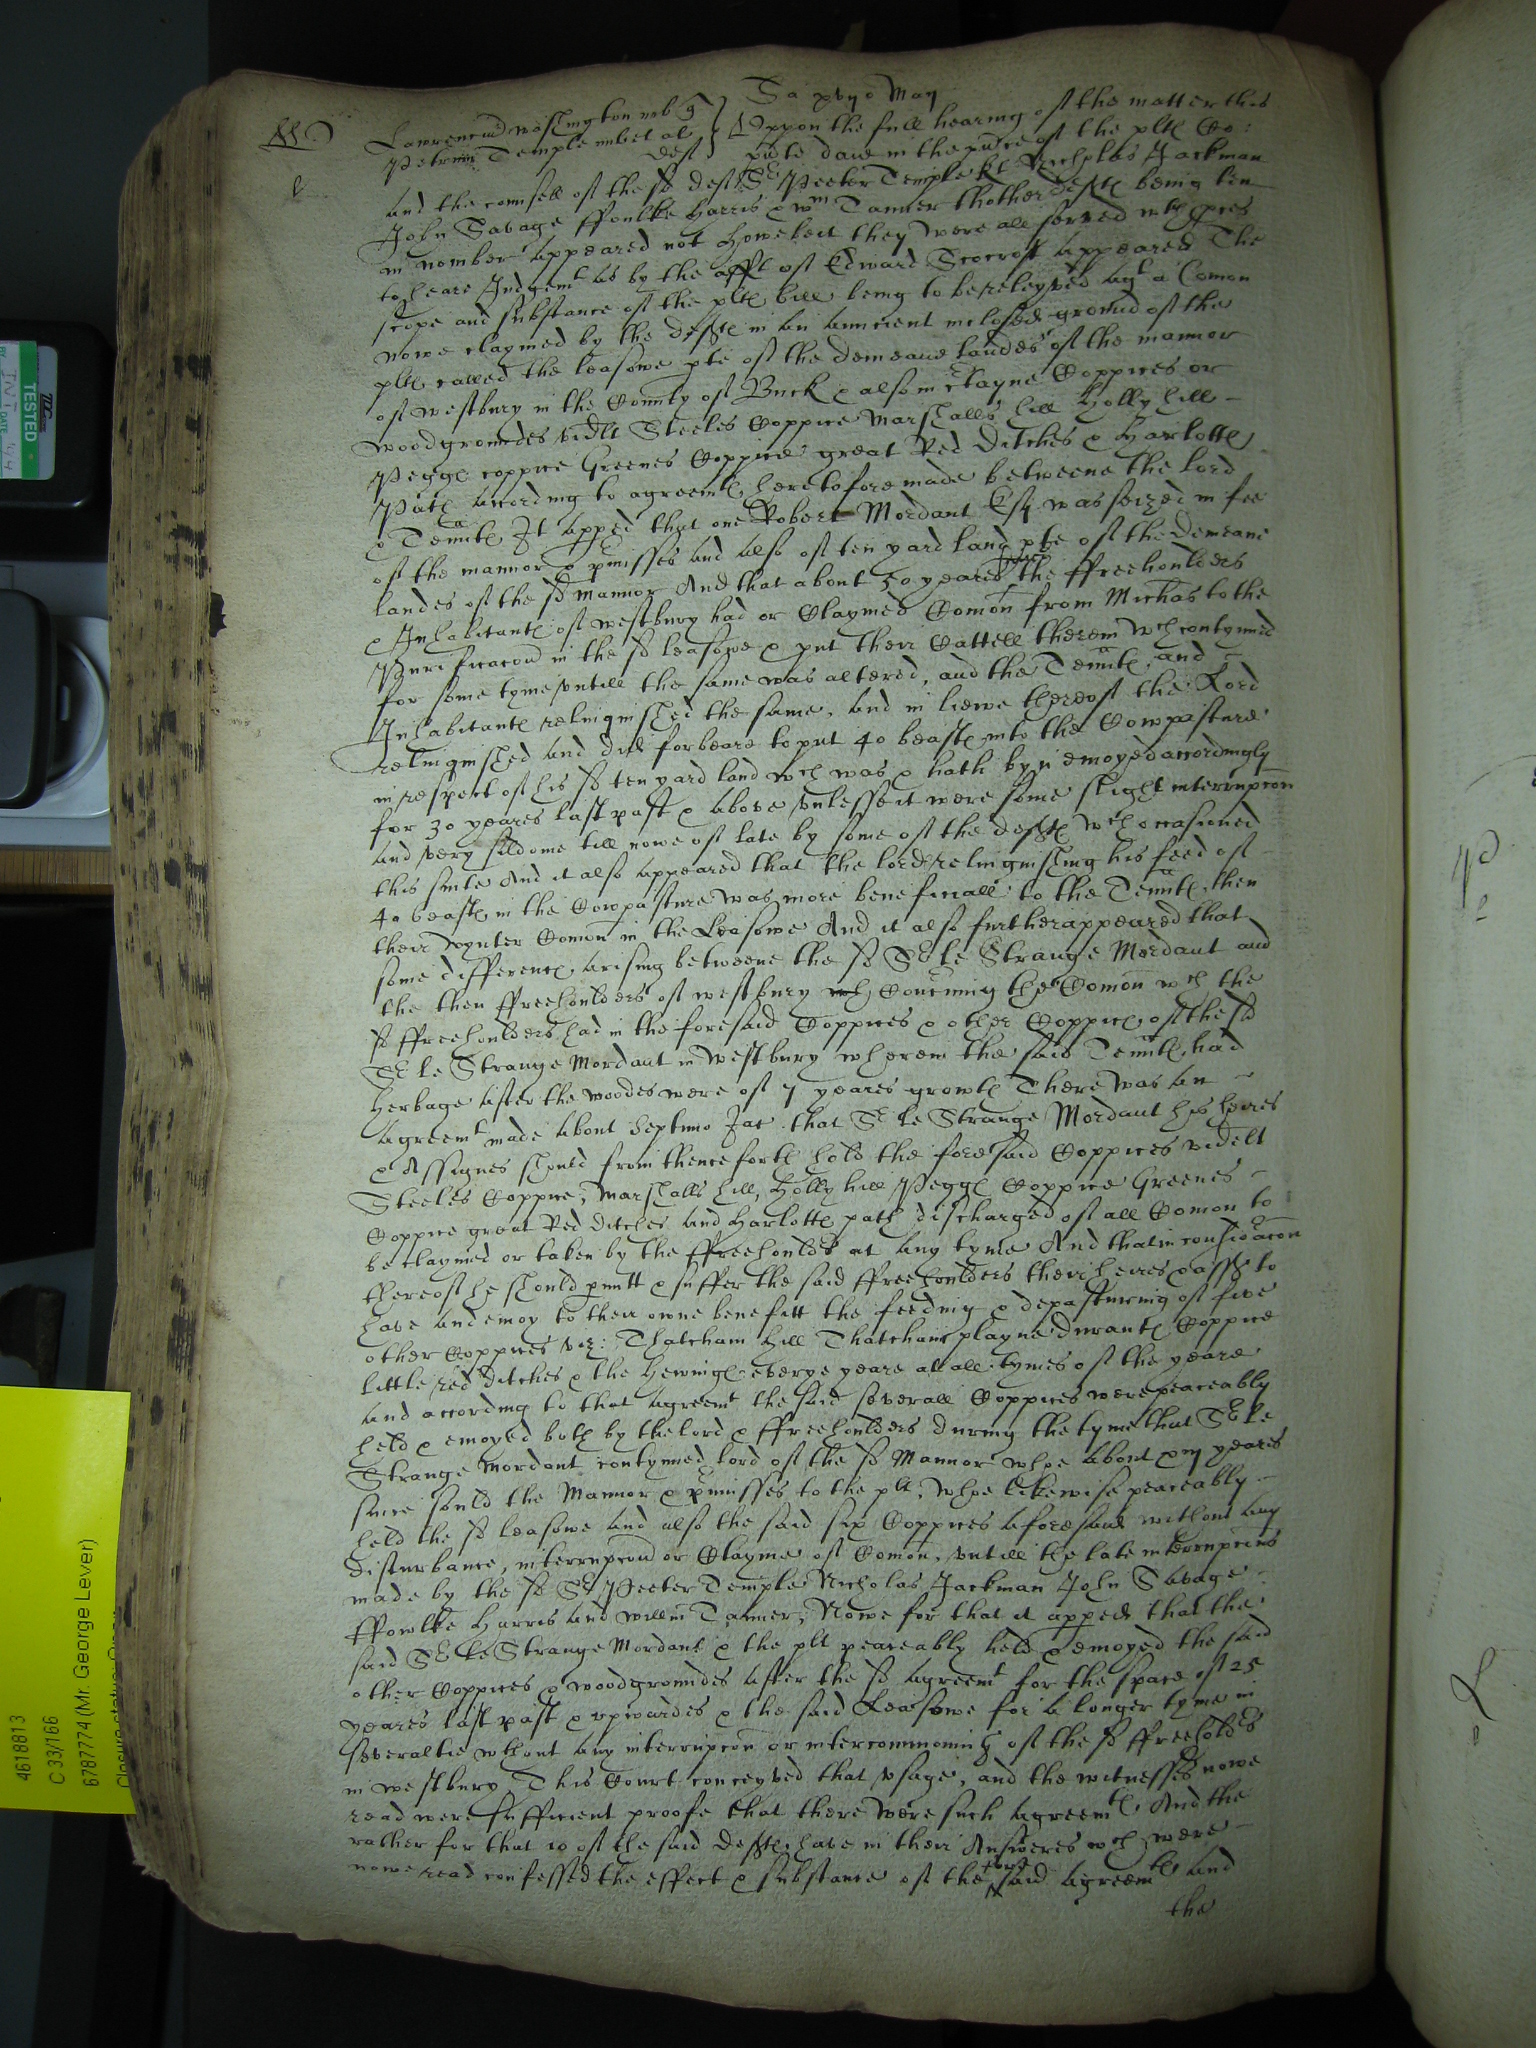 Sa xvijo Maij
Lawrencius Washington mil q
Petrum Temple milit al
deft
Uppon the full hearing of the matter this
pnte daie in the pnce of the plts Co:
and the counsell of the sd defts Sr Peeter Temple kt Nicholas Jackman
John Savage ffoulke Harris & Wm Tanner thother defts being ten
in nomber appeared not howbeit they were all served wth pces
to heare Judgemt as by the afft of Edward Scocroft appeared The
scope and substance of the plts bill being to be releyved agt a Comon
nowe claymed by the defts in an auncient inclosed ground of the
plts called the leasowe pte of the demeane landes of the mannor
of Westbury in the County of Buck & also in ctayne Coppices or
woodgroundes vidlt Steeles Coppice Marshalls hill Holly hill
Peggs coppice Greenes Coppice great Red Ditches & Harlotts
Path according to agreemts heretofore made betweene the lord
& Tennts It apped that one Robert Mordant Esq was seized in fee
of the mannor & pmisses and also of ten yard land pte of the demeane
landes of the sd mannor And that about 50 yeares the ffreehoulders
& Inhabitants of Westbury had or claymed Comon from Michas to the
Purificacon in the sd leasowe & put their Cattell therein wch contynued
for some tyme untill the same was altered, and the Tennts and
Inhabitants relinquished the same, and in liewe thereof the Lord
relinquished and did forbeare to put 40 beasts into the Cowpasture
in respect of his sd ten yard land wch was & hath byn enioyed accordingly
for 30 yeares last past & above unlesse it were some slight interrupcon
and very sildome till nowe of late by some of the defts wch occasioned
this suite And it also appeared that the lordes relinquishing his feed of
40 beasts in the Cowpasture was more beneficiall to the Tennts then
their wynter Comon in the Leasowe And it also further appeared that
some differents arising betweene the sd Sr le Strange Mordant and
the then ffreehoulders of Westbury Concning the Comon wch the
sd ffreehoulders had in the foresaid Coppices & other Coppices of the sd
Sr le Strange Mordant in Westbury wherein the said Tennts had
herbage after the woodes were of 7 yeares growth There was an
agreemt made about Septimo Jac that Sr le Strange Mordant his heires
& Assignes should from thenceforth hold the foresaid Coppices videlt
Steeles Coppice, Marshalls hill, Holly hill Peggs Coppice Greenes
Coppice great Red Ditches and Harlotts path discharged of all Comon to
be claymed or taken by the ffreehoulds at any tyme And that in consideracon
thereof he should pmitt & suffer the said ffreehoulders their heires & asss to
have and enioy to their owne benefitt the feeding & depasturing of five
other Coppices viz: Thatcham hill Thatcham playne Durants Coppice
little red ditches & the Hewings everye yeare at all tymes of the yeare
and according to that agreemt the said severall Coppices were peaceably
held & enioyed both by the lord & ffreehoulders during the tyme that Sr le
Strange Mordant contynued lord of the sd Mannor whoe about xvij yeares
since sould the Mannor & pmisses to the plt, whoe likewise peaceably
held the sd leasowe and also the said six Coppices aforesaid without any
disturbance, interrupcon or Clayme of Comon, untill the late interrupcons
made by the sd Sr Peeter Temple Nicholas Jackman John Savage
ffowlke Harris and Willm Tanner, Nowe for that it apped that the
said Sr le Strange Mordant & the plt peaceably held & enioyed the said
other Coppices & woodgroundes after the sd agreemt for the space of 25
yeares last past & upwardes & the said Leasowe for a longer tyme in
severaltie wthout any interrupcon or intercommoning of the sd ffreeholds
in Westbury This Court conceyved that usage, and the witnesses nowe
read were sufficient proofe that there were such agreemts And the
rather for that 10 of the said defts have in their Answeres wch were
nowe read confessed the effect & substance of the said agreemts and
the
TESTED
4618813
C 33/166
6787774 (Mr. George Lever)